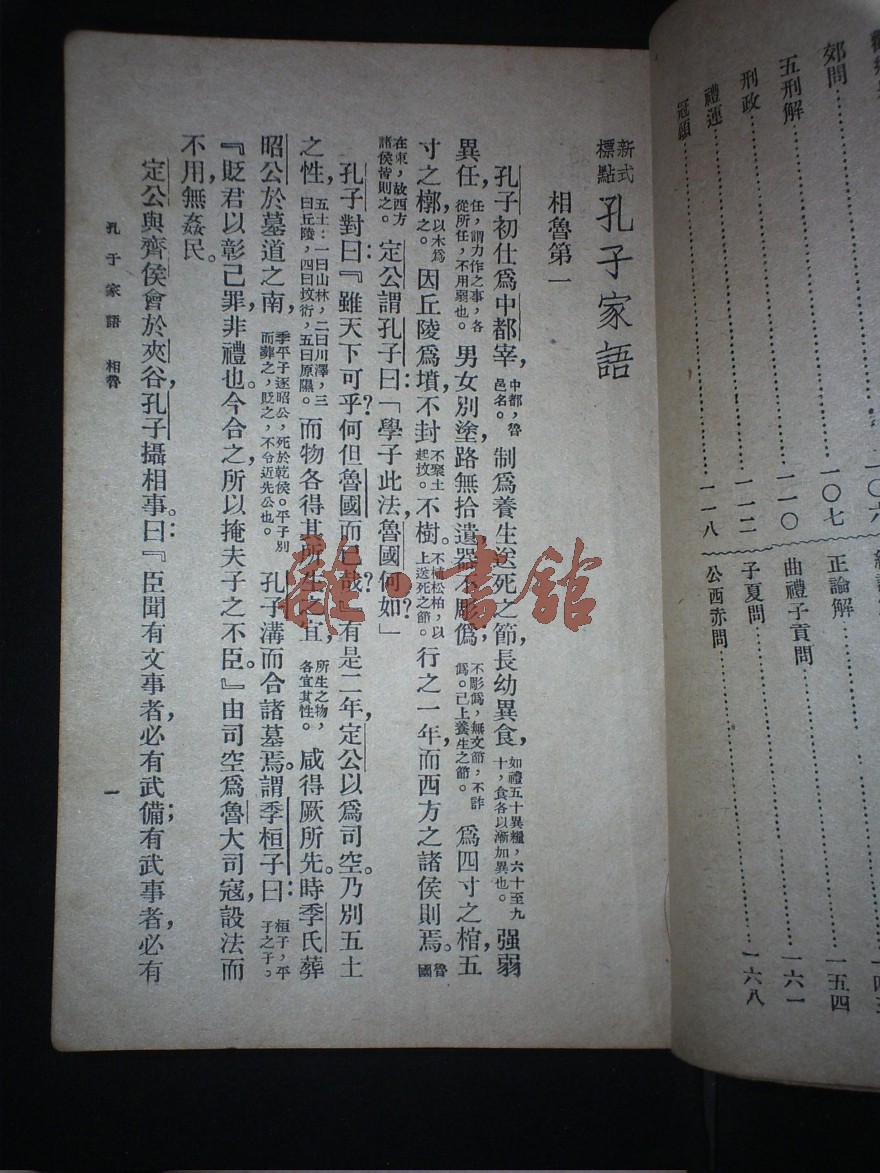 郊問⋯⋯一〇七
五刑解⋯⋯一一〇
刑政⋯⋯一一二
禮運⋯⋯一一八
冠頌
正論解⋯⋯一五四
曲禮子貢問⋯⋯一六一
子夏問⋯⋯一六八
公西赤問
新式標點 孔子家語
相魯第一
孔子初仕爲中都宰，中都，魯邑名。制爲養生送死之節，長幼異食，如禮五十異糧，六十至九十，食各以漸加異也。強弱
異任，任，謂力作之事，各從所任，不用弱也。男女別塗，路無拾遺，器不彫僞；不彫僞，無文節，不詐僞。已上養生之節。爲四寸之棺，五
寸之槨，以木爲之。因丘陵爲墳，不封不聚土起墳。不樹。不植松柏，以上送死之節。行之一年，而西方之諸侯則焉。魯國
在東，故西方諸侯皆則之。定公謂孔子曰：「學子此法，魯國何如？」
孔子對曰：『雖天下可乎？何但魯國而已哉？』有是二年，定公以爲司空。乃別五土
之性，五土：一曰山林，二曰川澤，三曰丘陵，四曰坟衍，五曰原隰。而物各得其所生之宜，所生之物，各宜其性。咸得厥所。先時季氏葬
昭公於墓道之南，季平子逐昭公，死於乾侯。平子別而葬之，貶之，不令近先公也。孔子溝而合諸墓焉。謂季桓子曰：桓子，平子之子。
『貶君以彰己罪，非禮也。今合之，所以掩夫子之不臣。』由司空爲魯大司寇，設法而
不用，無姦民。
定公與齊侯會於夾谷，孔子攝相事。曰：『臣聞有文事者，必有武備；有武事者，必有
孔子家語 相魯 一
龍·書館